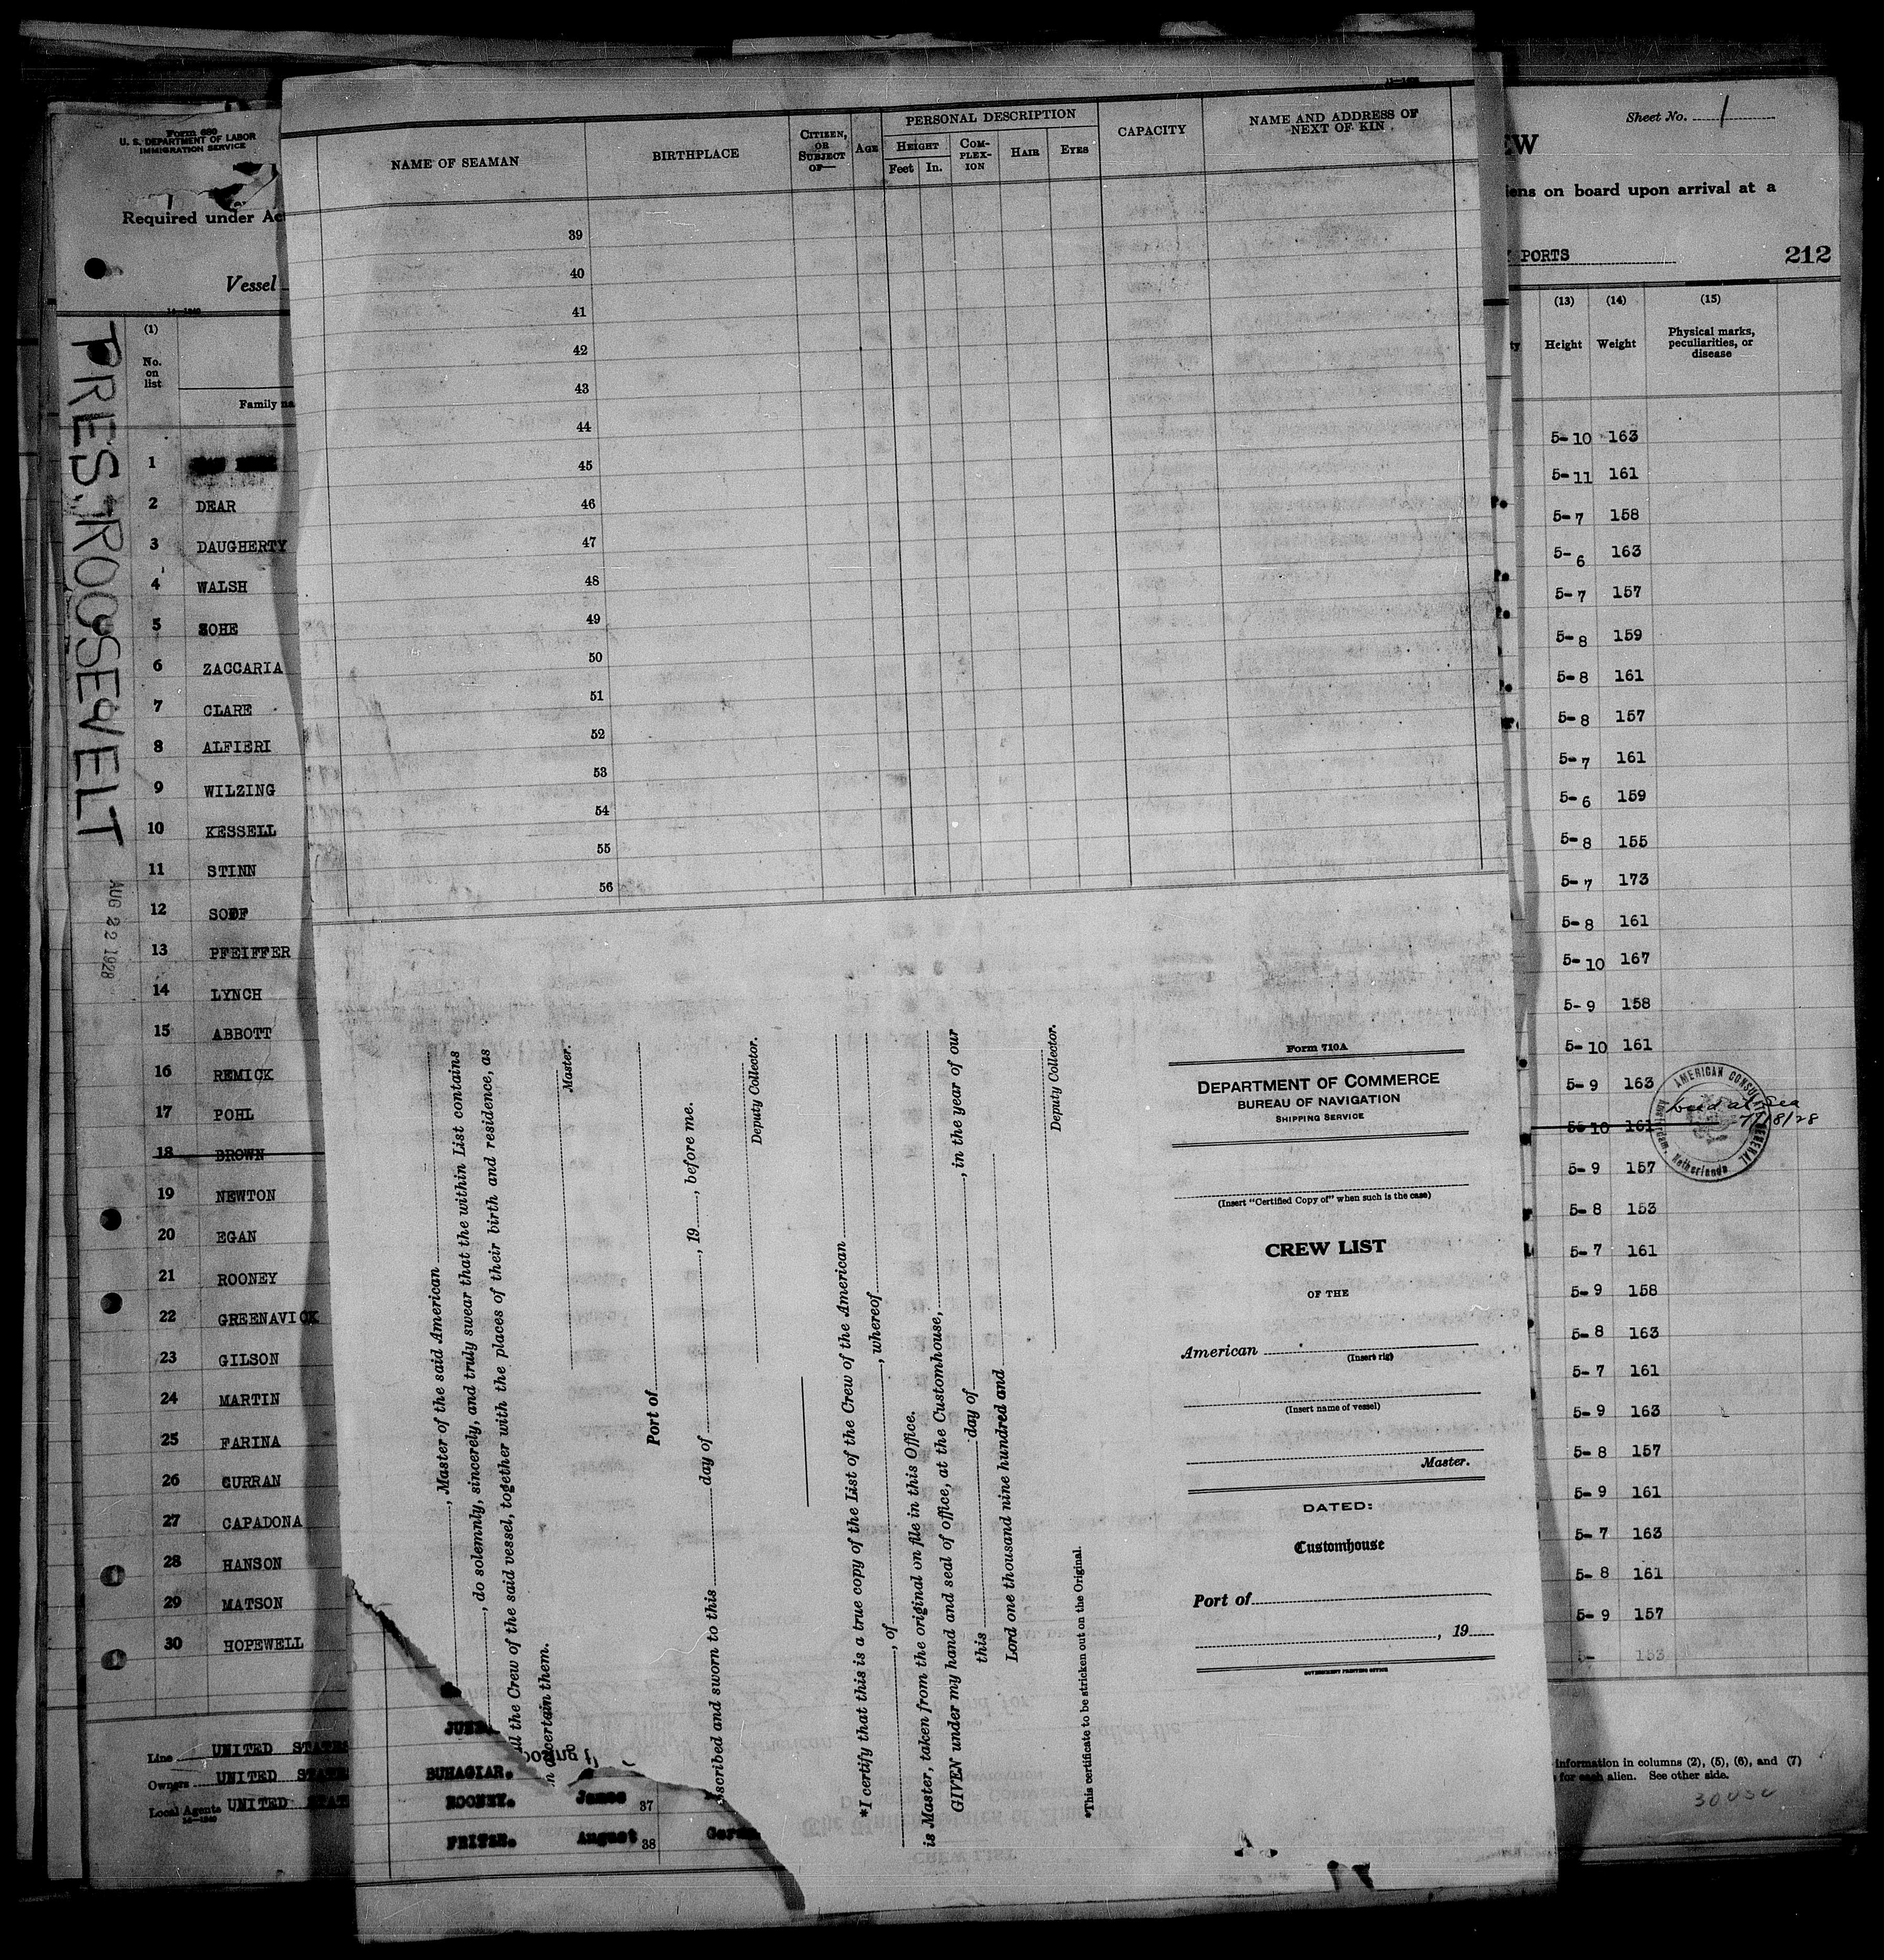 Form 680
U. S. DEPARTMENT OF LABOR
IMMIGRATION SERVICE
Required under Ac
Vessel
14—1240
PRES. ROOSEVELT
AUG 22 1928
(1)
No.
on
list
Family na
1
2 DEAR
3 DAUGHERTY
4 WALSH
5 SOHE
6 ZACCARIA
7 CLARE
8 ALFIERI
9 WILZING
10 KESSELL
11 STINN
12
13 PFEIFFER
14 LYNCH
15 ABBOTT
16 REMICK
17 POHL
18 BROWN
19 NEWTON
20 EGAN
21 ROONEY
22 GREENAVICK
23 GILSON
24 MARTIN
25 FARINA
26 CURRAN
27 CAPADONA
28 HANSON
29 MATSON
30 HOPEWELL
Line UNITED STATES
Owners UNITED STATE
Local Agents UNITED STAT
NAME OF SEAMAN
BIRTHPLACE
CITIZEN, OR SUBJECT OF—
AGE
PERSONAL DESCRIPTION
HEIGHT
Feet In.
COM-PLEX-ION
HAIR
EYES
CAPACITY
NAME AND ADDRESS OF NEXT OF KIN
39
40
41
42
43
44
45
46
47
48
49
50
51
52
53
54
55
56
, Master of the said American
, do solemnly, sincerely, and truly swear that the within List contains
ll the Crew of the said vessel, together with the places of their birth and residence, as
n ascertain them.
Master.
Port of
scribed and sworn to this day of , 19 , before me.
Deputy Collector.
*I certify that this is a true copy of the List of the Crew of the American
, of , whereof
is Master, taken from the original on file in this Office.
GIVEN under my hand and seal of office, at the Customhouse, , in the year of our
this day of
Lord one thousand nine hundred and
Deputy Collector.
*This certificate to be stricken out on the Original.
Form 710A
DEPARTMENT OF COMMERCE
BUREAU OF NAVIGATION
SHIPPING SERVICE
(Insert "Certified Copy of" when such is the case)
CREW LIST
OF THE
American
(Insert rig)
(Insert name of vessel)
Master.
DATED:
Customhouse
Port of
, 19
GOVERNMENT PRINTING OFFICE
BUHAGIAR.
ROONEY. James 37
FRITZE. August 38
Sheet No. 1
EW
iens on board upon arrival at a
PORTS
212
(13) (14) (15)
Height Weight Physical marks, peculiarities, or disease
5-10 163
5-11 161
5-7 158
5-6 163
5-7 157
5-8 159
5-8 161
5-8 157
5-7 161
5-6 159
5-8 155
5-7 173
5-8 161
5-10 167
5-9 158
5-10 161
5-9 163
5-10 161
AMERICAN CONSULATE GENERAL
Amsterdam, Netherlands
Died at Sea
7/18/28
5-9 157
5-8 153
5-7 161
5-9 158
5-8 163
5-7 161
5-9 163
5-8 157
5-9 161
5-7 163
5-8 161
5-9 157
5- 153
information in columns (2), (5), (6), and (7)
for each alien. See other side.